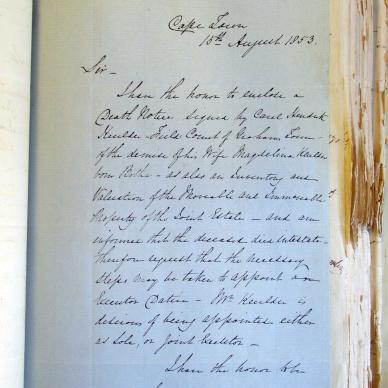 Cape Town
15th August 1853.
Sir -
I have the honor to enclose a
Death Notice signed by Carel Hendrik
Field Cornet of Graham Town -
of the demise of his Wife Magdalena
born Botha - as also an Inventory and
Valuation of the Movable and Immovable
Property of the Joint Estate - and am
informed that the deceased died intestate -
therefore request that the necessary
steps may be taken to appoint an
Executor Dative - Mr
desirous of being appointed either
as sole, or joint Executor -
I have the honor to be